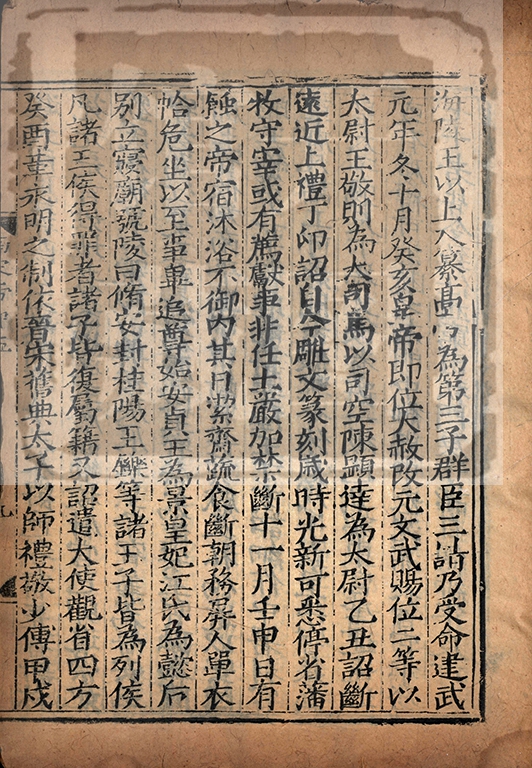 海陵王以上入纂高宗為第三子群臣三請乃受命建武
元年冬十月癸亥皇帝即位大赦改元文武賜位二等以
太尉王敬則為大司馬以司空陳顯達為太尉乙丑詔斷
遠近上禮丁卯詔自今雕文篆刻歲時光新可悉停省藩
牧守宰或有薦獻事非任土嚴加禁斷十一月壬申日有
蝕之帝宿沐浴不御内其日潔齋蔬食斷朝務屏人單衣
帢危坐以至事畢追尊始安貞王為景皇妃江氏為懿后
別立寢廟號陵曰脩安封桂陽王鑠等諸王子皆為列侯
凡諸王侯得罪者諸子皆復屬籍又詔遣大使觀省四方
癸酉革永明之制依晉宋舊典太子以師禮敬少傅甲戌